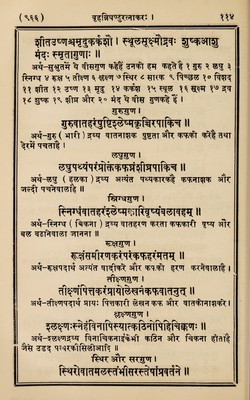 (९६६) बृहन्निघण्टुरत्नाकरः । ११४
शीतउष्णश्चमृदुकर्कशौ । स्थूलसूक्ष्मौद्रवः शुष्कआशु
मंदः स्मृतागुणाः ।
अर्थ-सुश्रुतमें ये वीसगुण कहेहैं उनको हम कहते हैं १ गुरु २ लघु ३
स्निग्ध ४ रूक्ष ५ तीक्ष्ण ६ श्लक्ष्ण ७ स्थिर ८ सारक ९ पिच्छल १० विशद
११ शीत १२ उष्ण १३ मृदु १४ कर्कश १५ स्थूल १६ सूक्ष्म १७ द्रव
१८ शुष्क १९ शीघ्र और २० मंद ये वीस गुणकहे हैं ।
गुरुगुण ।
गुरुवातहरंपुष्टिश्लेष्मकृच्चिरपाकिच ॥
अर्थ-गुरु ( भारी ) द्रव्य वातनाशक पुष्टता और कफको करेहै तथा
देरमें पचताहै ।
लघुगुण ।
लघुपथ्यंपरंप्रोक्तंकफघ्नंशीघ्रपाकिच ॥
अर्थ-लघु ( हलका ) द्रव्य अत्यंत पथ्यकारकहै कफनाशक और
जल्दी पचनेवालाहै ॥
स्निग्धगुण ।
स्निग्धंवातहरंश्लेष्मकारिवृष्यंबलावहम् ॥
अर्थ-स्निग्ध ( चिकना ) द्रव्य वातहरण करता कफकारी वृष्य और
बल बढानेवाला जानना ॥
रूक्षगुण ।
रूक्षंसमीरणकरंपरंकफहरंमतम् ॥
अर्थ-रूक्षपदार्थ अत्यंत वादीकरे और कफको हरण करनेवालाहै ।
तीक्ष्णगुण ।
तीक्ष्णंपित्तकरंप्रायोलेखनंकफवातनुत् ॥
अर्थ-तीक्ष्णपदार्थ प्रायः पित्तकारी लेखन कफ और वातकोनाशकरे।
श्लक्ष्णगुण ।
श्लक्ष्णःस्नेहंविनापिस्यात्कठिनोपिहिचिक्कणः ॥
अर्थ-श्लक्ष्णद्रव्य विनाचिकनाईकेभी कठिन और चिकना होताहै
जैसे उडद पत्थरकीसिलीआदि ॥
स्थिर और सरगुण ।
स्थिरोवातमलस्तंभीसरस्तेषांप्रवर्तने ॥